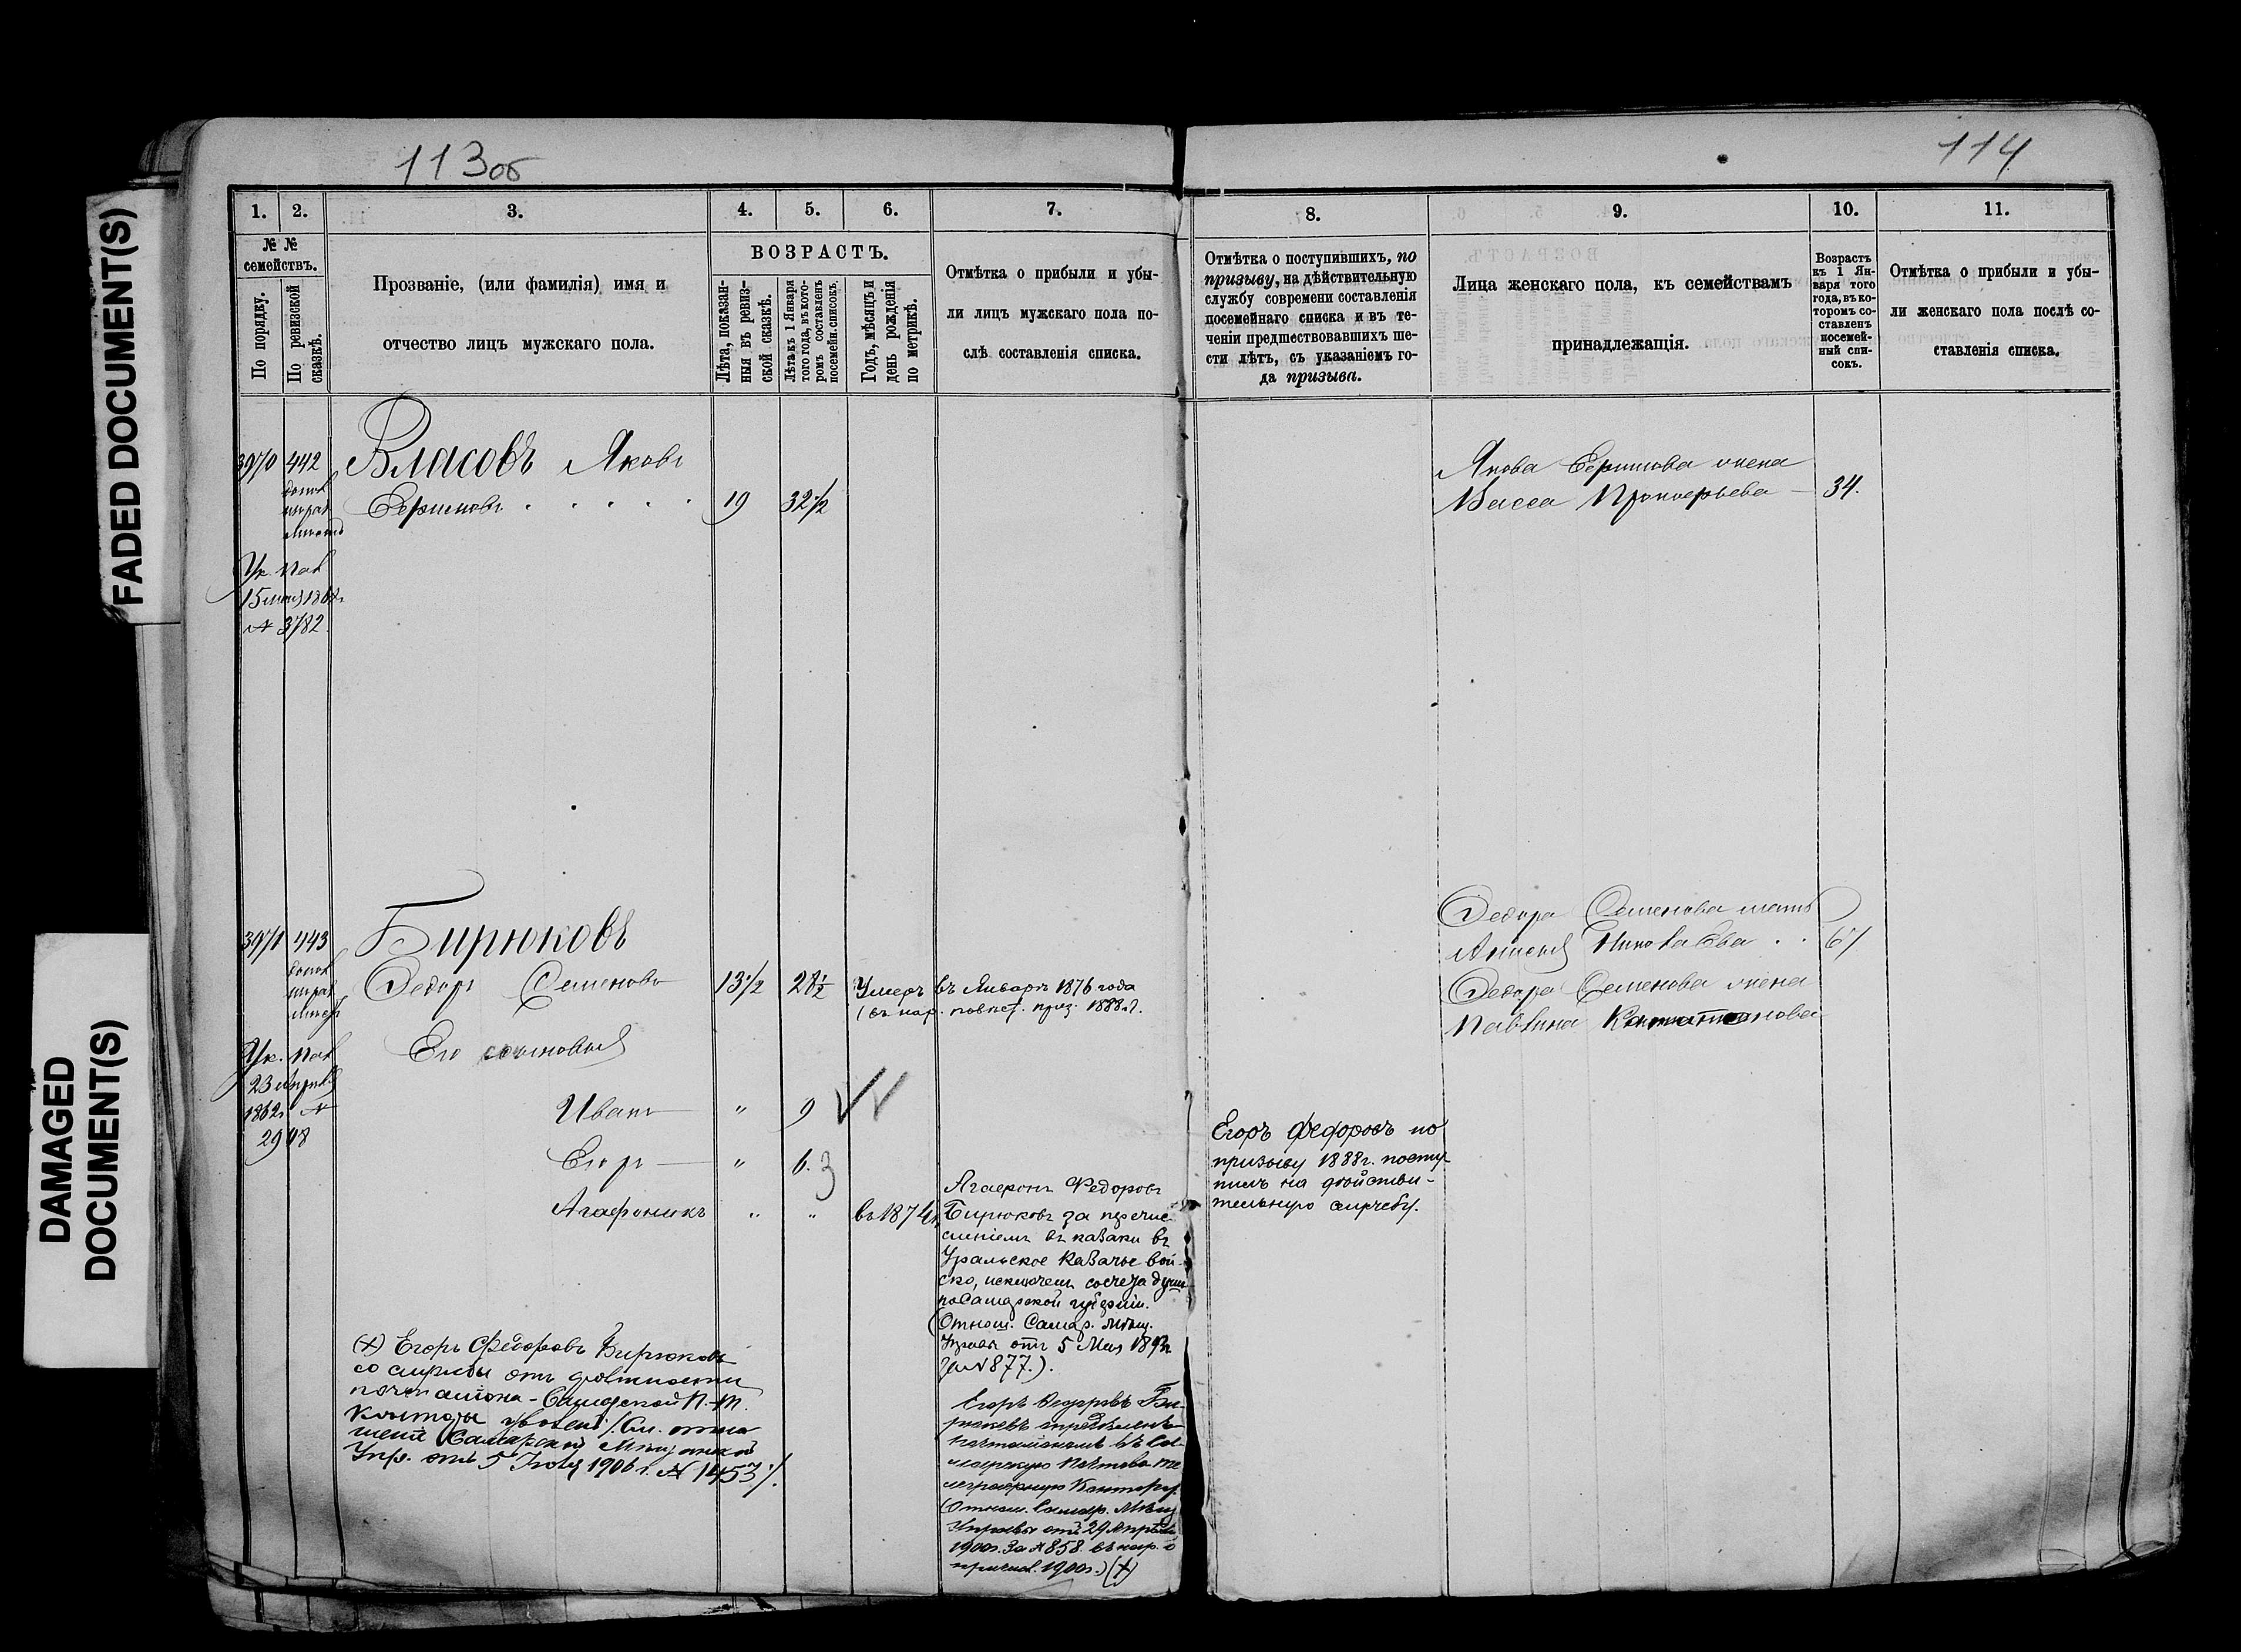 FADED DOCUMENT(S)
DAMAGED
DOCUMENT(S)
113об
1.
2.
3.
4.
5.
6.
7.
№ №
семействъ.
По порядку.
По ревизской
сказкѣ.
Прозваніе, (или фамилія) имя и
отчество лицъ мужскаго пола.
ВОЗРАСТЪ.
Лѣта, показан-
ныя въ ревиз-
ской сказкѣ.
Лѣта къ 1 Января
того года, въ кото-
ромъ составленъ
посемейн. списокъ.
Годъ, мѣсяцъ и
день рожденія
по метрикѣ.
Отмѣтка о прибыли и убы-
ли лицъ мужскаго пола по-
слѣ составленія списка.
3970
442
Власовъ Яковъ
19
32½
Ук. Пал
№ 3782
3971
443
Бирюковъ
Федоръ Семеновъ
13½
28½
Умеръ въ Январѣ 1876 года
(въ нар. повѣст. приз. 1888 г.).
Его сыновья
Ук. Пал
23 Апрѣля
1862г. №
2908
Иванъ
"
9
Егоръ
"
6.
3
Агафоникъ
"
"
въ 1874г.
Агафонъ Федоровъ
Бирюковъ за перечис-
леніемъ въ казаки въ
Уральское Казачье вой-
ско, исключенъ со счета душъ
по Самарской губерніи.
(Отнош. Самар. Мѣщ.
Управы отъ 5 Мая
за № 877.).
Егоръ Федоровъ Би-
рюковъ опредѣленъ
почталіономъ въ Са-
марскую Почтово-те
леграфную Контору.
(Отнош. Самар. Мѣщ.
Управы отъ 29 Апрѣля
1900г. За № 858. въ нар. о
1900г.) (х)
(х) Егоръ Федоровъ Бирюковъ
со службы отъ должности
почталіона - Самарской П.-Т.
Конторы уволенъ /См. отно
шеніе Самарской Мѣщанской
Упр. отъ 5 1906 г. № 1453/.
114
8.
9.
10.
11.
Отмѣтка о поступившихъ, по
призыву, на дѣйствительную
службу современи составленія
посемейнаго списка и въ те-
ченіи предшествовавшихъ ше-
сти лѣтъ, съ указаніемъ го-
да призыва.
Лица женскаго пола, къ семействамъ
принадлежащія.
Возрастъ
къ 1 Ян-
варя того
года, въ ко-
торомъ со-
ставленъ
посемей-
ный спи-
сокъ.
Отмѣтка о прибыли и убы-
ли женскаго пола послѣ со-
ставленія списка.
Якова жена
Васса Прокофьева
34.
Федора Семенова мать
Николаева . .
67
Федора Семенова жена
Егоръ Федоровъ по
призыву 1888г. посту-
пилъ на дѣйстви-
тельную службу.